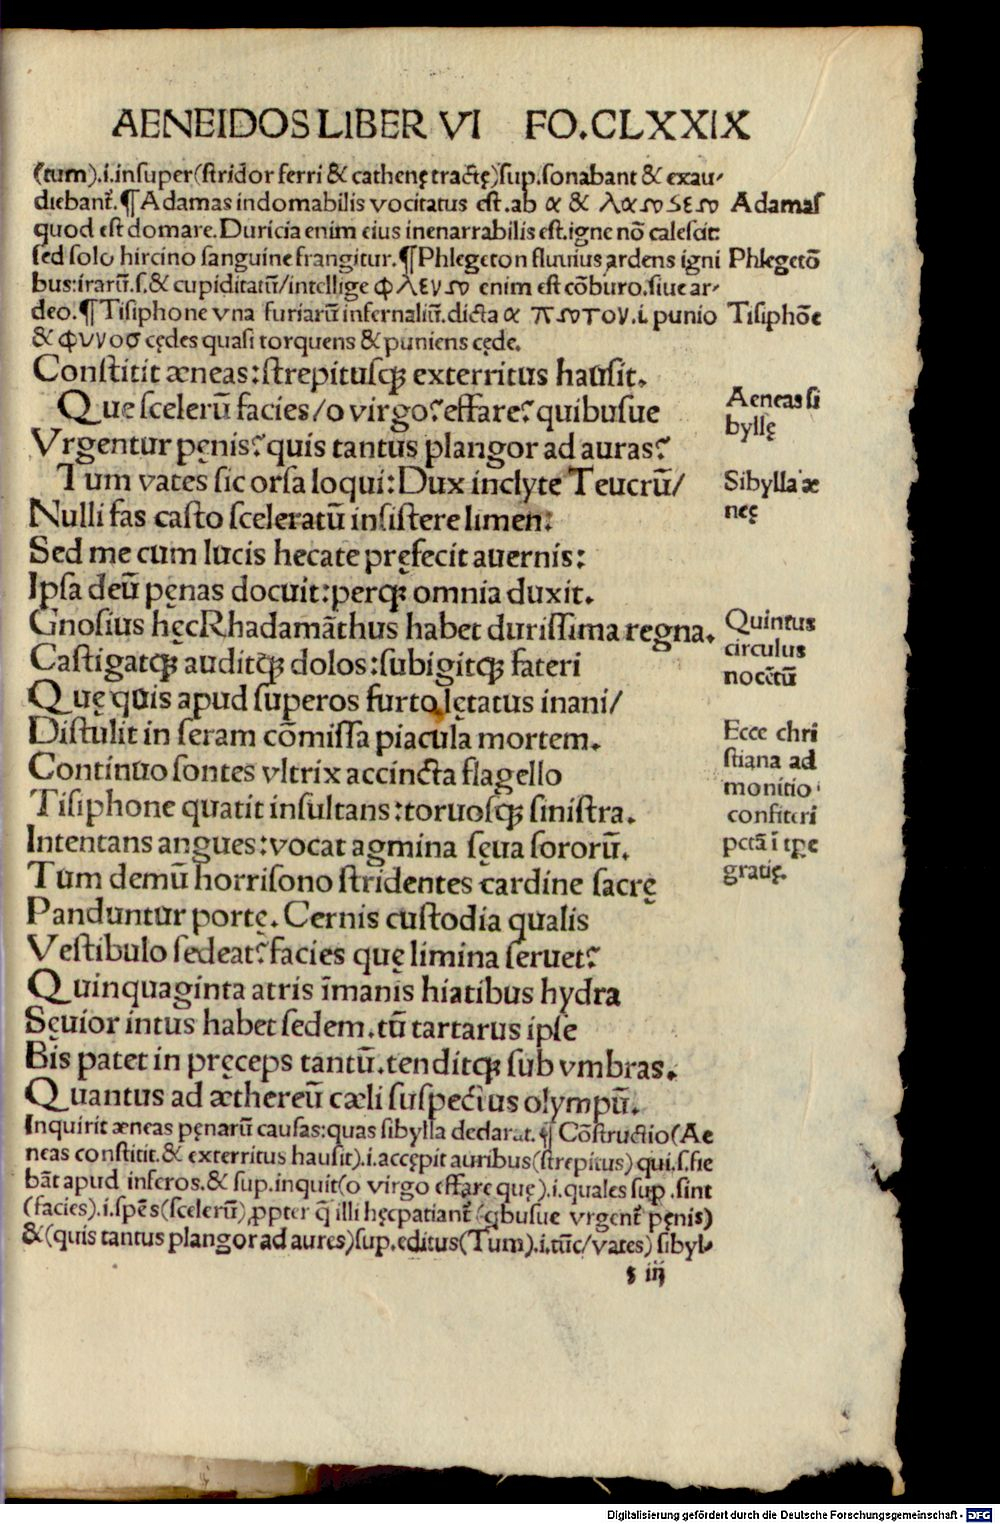 AENEIDOS LIBER VI FO.CLXXIX
(tum).i.insuper(stridor ferri & cathenę tractę)sup.sonabant & exau-
diebant̄.¶Adamas indomabilis vocitatus est.ab α &
quod est domare.Duricia enim eius inenarrabilis est.igne nō calescit:
sed solo hircino sanguine frangitur.¶Phlegeton fluuius ardens igni
bus:irarū.s.& cupiditatū/intellige φλευω enim est cōburo.siue ar-
deo.¶Tisiphone vna furiarū infernaliū.dicta α .i.punio
& cędes quasi torquens & puniens cęde.
Adamas
Phlegetō
Tisiphōe
Constitit æneas:strepitusqꝫ exterritus hausit.
Que scelerū facies/o virgo?effare?quibusue
Vrgentur pęnis?quis tantus plangor ad auras?
Tum vates sic orsa loqui:Dux inclyte Teucrū/
Nulli fas casto sceleratū insistere limen:
Sed me cum lucis hecate pręfecit auernis:
Ipsa deū pęnas docuit:perqꝫ omnia duxit.
Gnosius hęc Rhadamāthus habet durissima regna.
Castigatqꝫ auditqꝫ dolos:subigitqꝫ fateri
Quę quis apud superos furto lętatus inani/
Distulit in seram cōmissa piacula mortem.
Continuo sontes vltrix accincta flagello
Tisiphone quatit insultans:toruosqꝫ sinistra.
Intentans angues:vocat agmina sęua sororū.
Tum demū horrisono stridentes cardine sacrę
Panduntur portę.Cernis custodia qualis
Vestibulo sedeat?facies quę limina seruet?
Quinquaginta atris īmanis hiatibus hydra
Sęuior intus habet sedem.tū tartarus ipse
Bis patet in pręceps tantū.tenditqꝫ sub vmbras.
Quantus ad æthereū cæli suspectus olympū.
Aeneas si
byllę
Sibylla æ
neę
Quintus
circulus
nocētū
Ecce chri
stiana ad
monitio
confiteri
pctā ī tp̄e
gratię.
Inquirit æneas pęnarū causas:quas sibylla declarat.¶Cōstructio(Ae
neas constitit.& exterritus hausit).i.accępit auribus(strepitus)qui.s.fie
bāt apud inferos.& sup.inquit(o virgo effare quę).i.quales sup.sint
(facies).i.spēs(scelerū)ꝓpter q̄ illi hęc patiant̄(qbusue vrgent̄ pęnis)
&(quis tantus plangor ad aures)sup.editus(Tum).i.tūc/vates)sibyl-
s iij
Digitalisierung gefördert durch die Deutsche Forschungsgemeinschaft - DFG